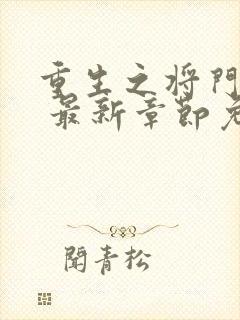 重生之将門
最新章節免
聞青松